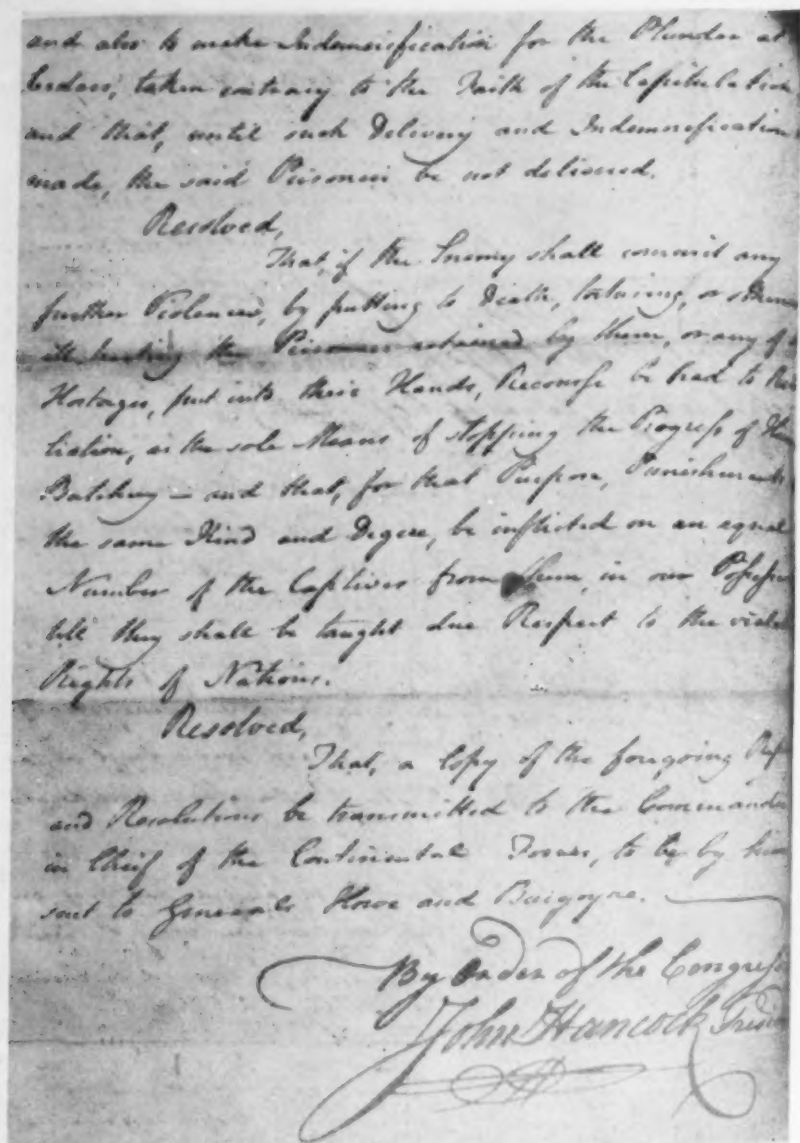 and also to make Indemnification for the Plunder at
Cedars, taken contrary to the Faith of the Capitulation
and that, until such Delivery and Indemnification
made, the said Prisoners be not delivered.
Resolved,
That, if the Enemy shall commit any
further Violences, by putting to Death, torturing, or otherw
ill treating the Prisoners retained by them, or any of
Hostages, put into their Hands, Recourse be had to Reta
liation, as the sole Means of stopping the Progress of Hum
Butchery – and that, for that Purpose, Punishments
the same Kind and Degree, be inflicted on an equal
Number of the Captives from them, in our Possess
till they shall be taught due Respect to the viola
Rights of Nations.
Resolved,
That, a Copy of the foregoing Rep
and Resolutions be transmitted to the Commander
in Chief of the Continental Forces, to be by him
sent to Generals Howe and Burgoyne.
By Order of the Congress
John Hancock Presid